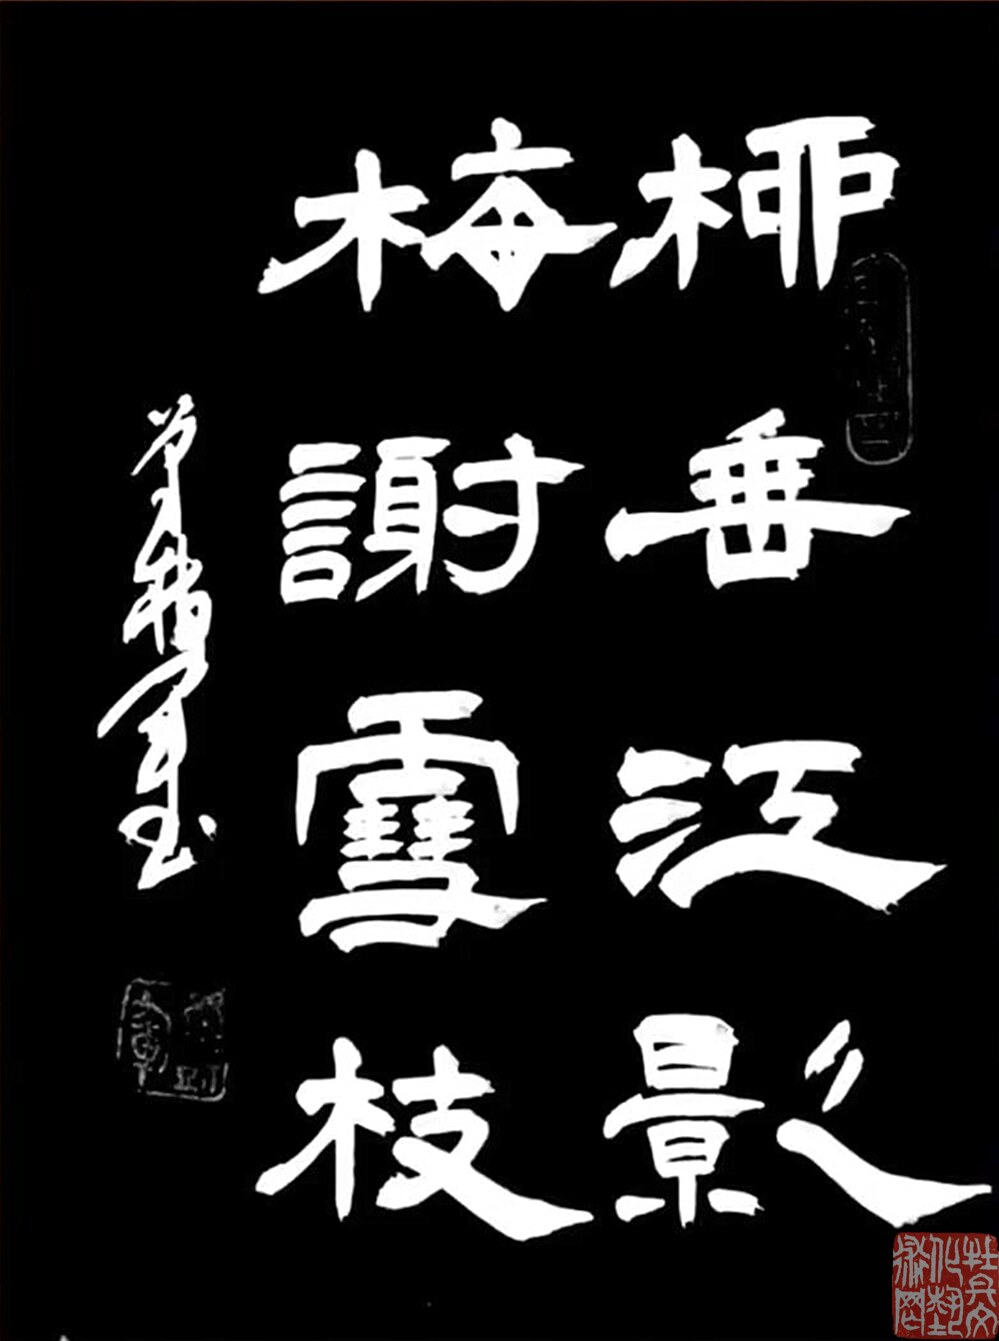 柳垂江影
梅謝雪枝